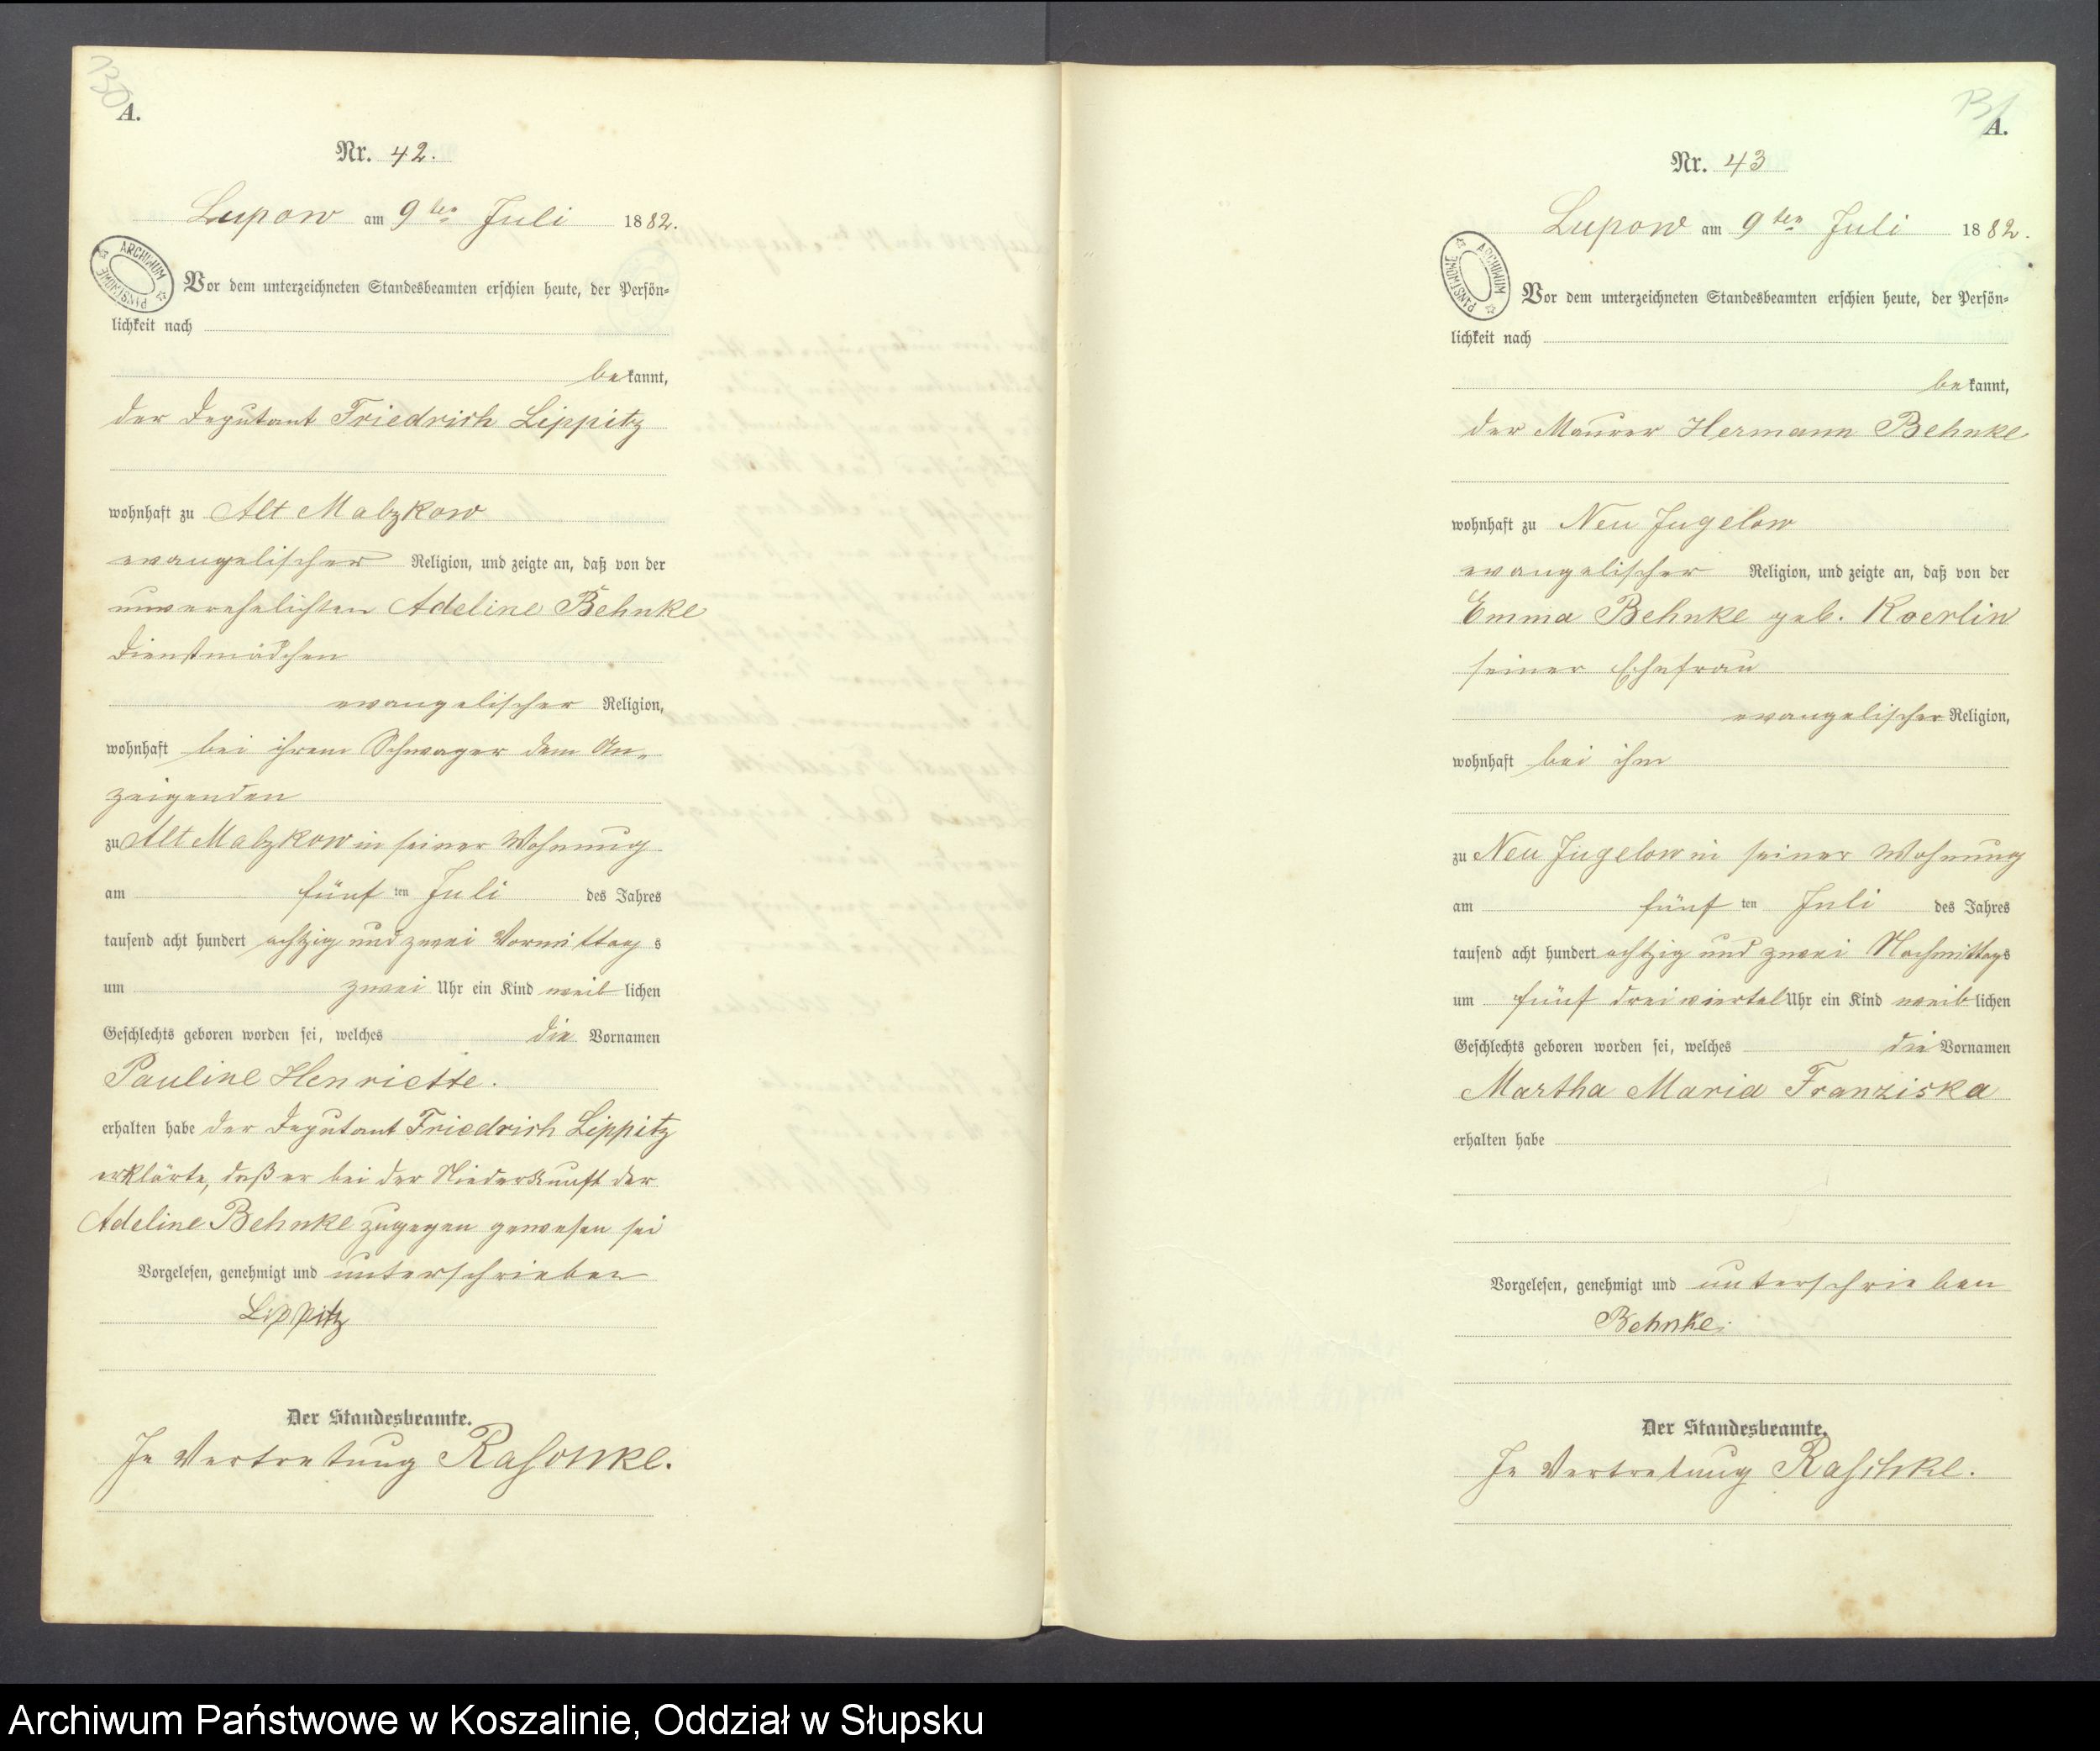 130
A.
Nr. 42.
Lupow am 9ten Juli 1882.
ARCHIWUM PAŃSTWOWE
Vor dem unterzeichneten Standesbeamten erschien heute, der Persön=
lichkeit nach
bekannt,
der Deputant Friedrich Lippitz
wohnhaft zu Alt Malzkow
evangelischer Religion, und zeigte an, daß von der
unverehelichten Adeline Behnke
Dienstmädchen
evangelischer Religion,
wohnhaft bei ihrem Schwager dem An=
zeigenden
zu Alt Malzkow in seiner Wohnung
am fünf ten Juli des Jahres
tausend acht hundert achtzig und zwei Vormittags
um zwei Uhr ein Kind weiblichen
Geschlechts geboren worden sei, welches die Vornamen
Pauline Henriette.
erhalten habe der Deputant Friedrich Lippitz
erklärte, daß er bei der Niederkunft der
Adeline Behnke zugegen gewesen sei
Vorgelesen, genehmigt und unterschrieben
Lippitz
Der Standesbeamte.
In Vertretung Raschke.
131
A.
Nr. 43
Lupow am 9ten Juli 1882.
ARCHIWUM PAŃSTWOWE
Vor dem unterzeichneten Standesbeamten erschien heute, der Persön=
lichkeit nach
bekannt,
der Maurer Hermann Behnke
wohnhaft zu Neu Jugelow
evangelischer Religion, und zeigte an, daß von der
Emma Behnke geb. Koerlin
seiner Ehefrau
evangelischer Religion,
wohnhaft bei ihm
zu Neu Jugelow in seiner Wohnung
am fünf ten Juli des Jahres
tausend acht hundert achtzig und zwei Nachmittags
um fünf dreiviertel Uhr ein Kind weiblichen
Geschlechts geboren worden sei, welches die Vornamen
Martha Maria Franziska
erhalten habe
Vorgelesen, genehmigt und unterschrieben
Behnke.
Der Standesbeamte.
In Vertretung Raschke.
Archiwum Państwowe w Koszalinie, Oddział w Słupsku